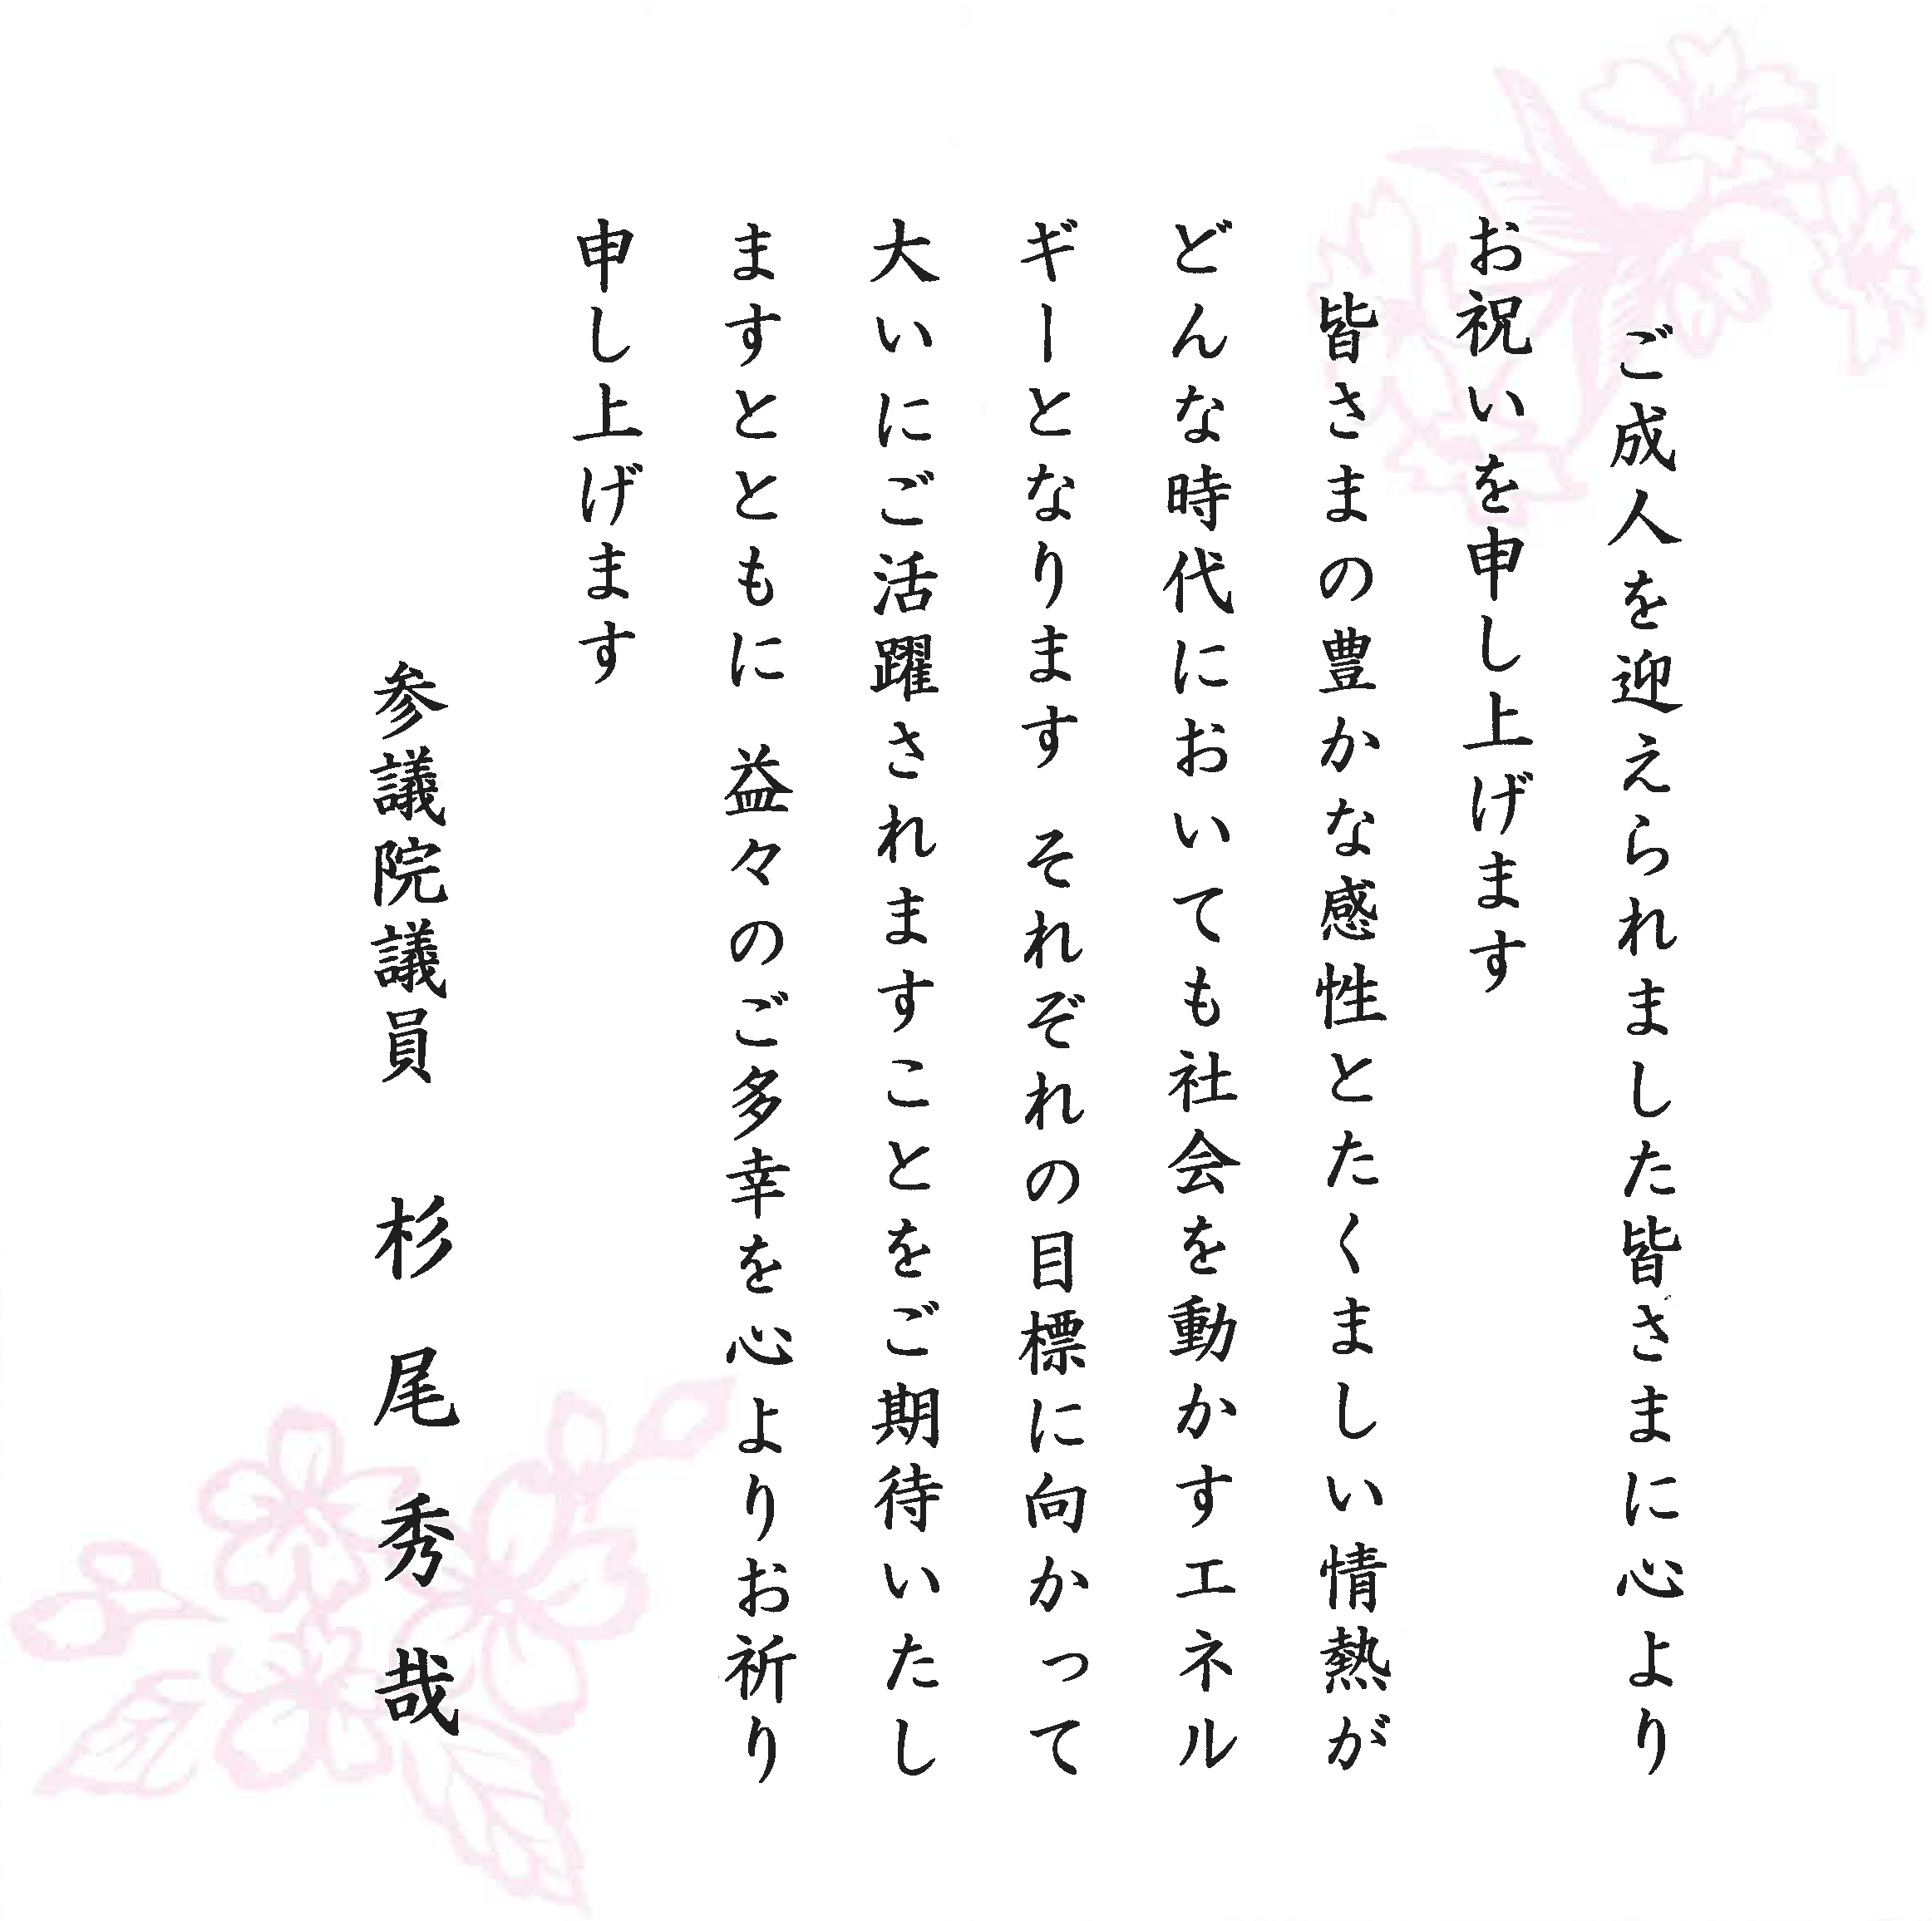 ご成人を迎えられました皆さまに心より
お祝いを申し上げます
皆さまの豊かな感性とたくましい情熱が
どんな時代においても社会を動かすエネル
ギーとなります それぞれの目標に向かって
大いにご活躍されますことをご期待いたし
ますとともに 益々のご多幸を心よりお祈り
申し上げます
参議院議員 杉尾秀哉